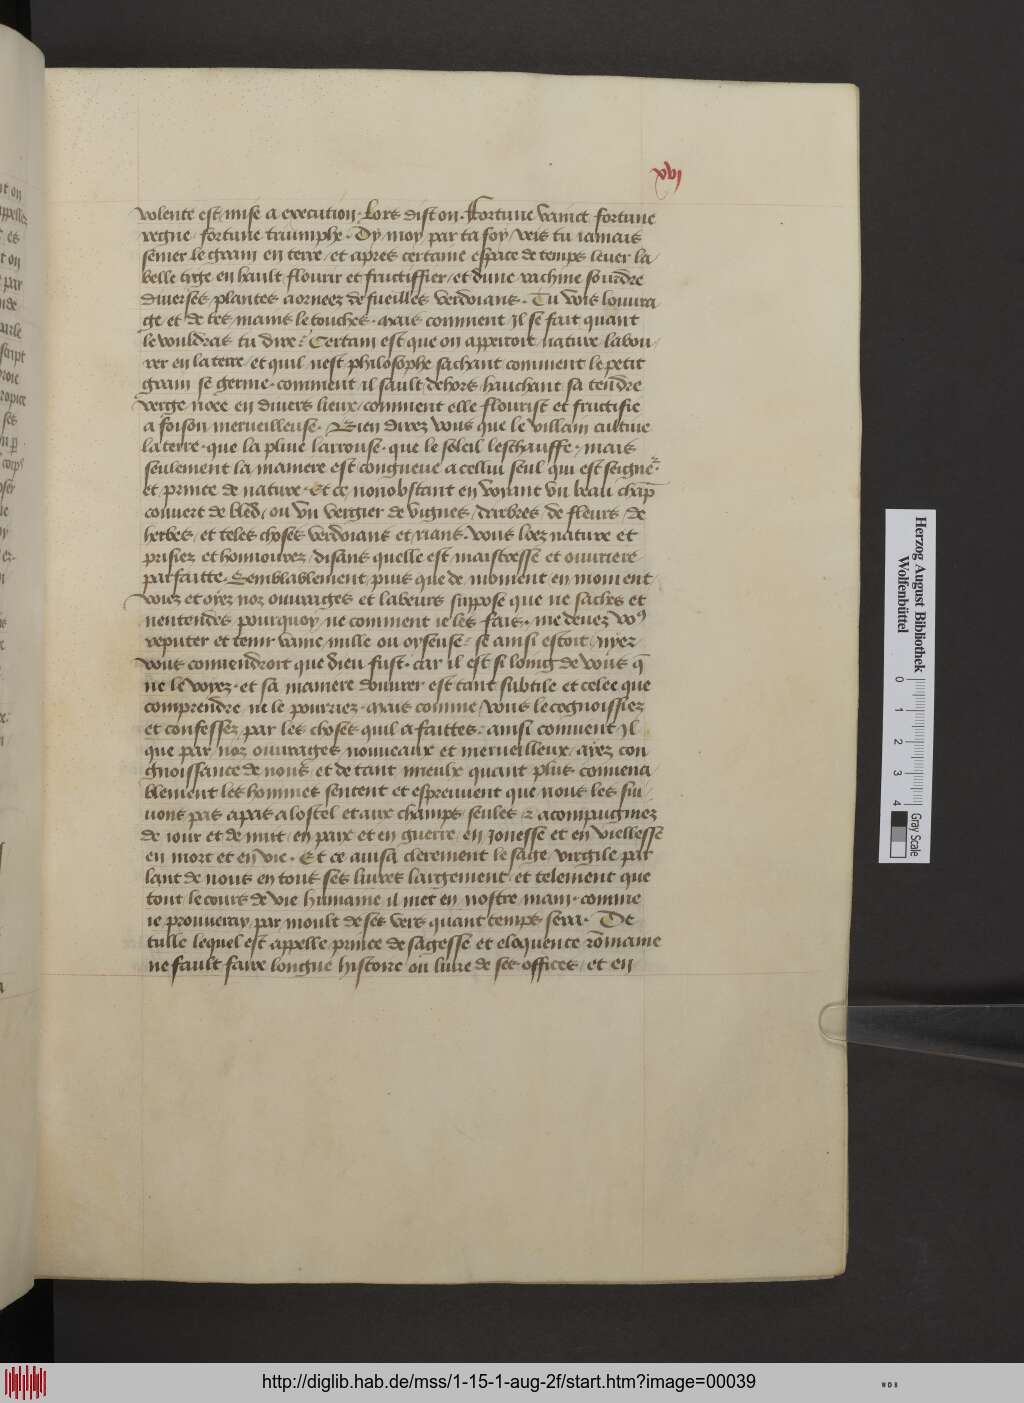 xvi
volente est mise a execution. Lors dist on. Fortune vainct fortune
regne / fortune triumphe. Dy moy par ta foy / veis tu iamais
semer le grain en terre / et apres certaine espace de temps lever la
belle tige en hault / flourir et fructiffier / et dune rachine sourdre
diverses plantes aornees de fueilles verdoians. Tu vois louura
ge et de tes mains le touches. mais comment Jl se fait quant
le vouldras tu dire? Certain est que on appercoit nature labou/
rer en la terre / et quil nest philosophe sachant comment le petit
grain se germe. comment il sault dehors hauchant sa tendre
verge noee en divers lieux / comment elle flourist et fructifie
a foison merveilleuse. Bien direz vous que le villain cultive
la terre. que la pluie larrouse. que le soleil leschauffe. mais
seulement la maniere est congneue a cellui seul qui est seignr
et prince de nature. Et ce nonobstant en voyant vn beau chāp
couvert de bled / ou vn vergier de vignes / darbres / de fleurs / de
herbes / et teles choses verdoians et rians. vous loez nature et
prisiez et honnourez / disans quelle est maistresse et ouvriere
parfaitte. Semblablement / puis que de moment en moment
voiez et oyez noz ouvrages et labeurs suppose que ne saches et
nentendes pourquoy ne comment ie les fais. me devez vo9
reputer et tenir vaine nulle ou oyseuse? se ainsi estoit / nyer
vous conviendroit que dieu fust. car il est si loing de vous q̄
ne le voyez. et sa maniere douvrer est tant subtile et celee que
comprendre ne le pourriez. mais comme vous le cognoissiez
et confessez par les choses quil a faittes. ainsi convient Jl
que par noz ouvrages nouveaux et merveilleux / ayez con
gnoissance de nous / et de tant mieulx quant plus convena/
blement les hommes sentent et espreuvent que nous les sui/
vons pas apas a lostel et aux champs / seules & acompaigniez
de iour et de nuit / en paix et en guerre / en Jonesse et en viellesse
en mort et en vie. Et ce avisa clerement le sage virgile par
lant de nous en tous ses livres largement / et telement que
tout le cours de vie humaine il met en nostre main. comme
ie prouveray par moult de ses vers quant temps sera. De
tulle lequel est appelle prince de sagesse et eloquence rōmaine
ne fault faire longue histoire ou livre de ses offices / et en
Herzog August Bibliothek
Wolfenbüttel
0 1 2 3 4
Gray Scale
http://diglib.hab.de/mss/1-15-1-aug-2f/start.htm?image=00039